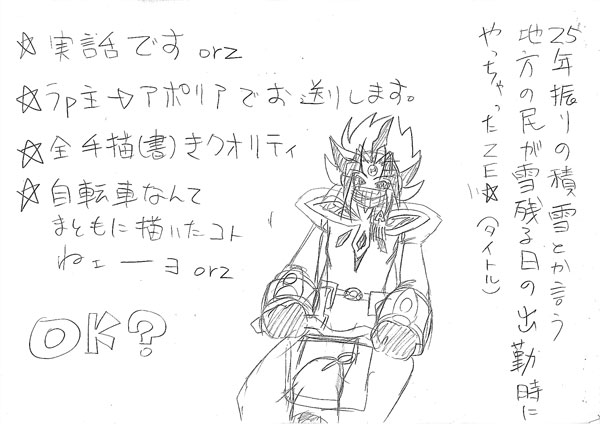 25年振りの積雪とか言う
地方の民が雪残る日の出勤時に
やっちゃったZE☆(タイトル)
☆実話です orz
☆うp主→アポリアでお送りします。
☆全手描(書)きクオリティ
☆自転車なんて
まともに描いたコト
ねェーヨ orz
OK?